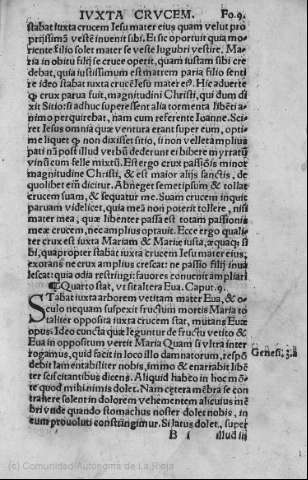 IVXTA CRVCEM. Fo.9.
stabat iuxta crucem Iesu mater eius quam velut pro
pria vestē invenit sibi. Et sic oportuit quia mo
riente filio solet mater se veste lugubri vestire, Ma
ria in obitu filij se cruce operit, quam iustam sibi cre
debat, quia iustissimum est matrem paria filio senti
re ideo stabat iuxta crucē Iesu mater ei9. Hic aduerte
q̄ crux parua fuit, magnitudini Christi, qui dum di
xit Sitio: si adhuc superessent alia tormenta libēti a
nimo perquirebat, nam cum referente Ioanne. Sci
ret Iesus omnia quæ ventura erant super eum, opti
me liquet q̄ non dixisset sitio, si non vellet amplius
pati nā post illud verbū dederunt ei bibere myrratū
vinū cum felle mixtū. Est ergo crux passiōis minor
magnitudine Christi, & est maior alijs sanctis, de
quolibet eīm dicitur. Abneget semetipsum & tollat
crucem suam, & sequatur me. Suam crucem inquit
paruam videlicet, quia meā non poterit tollere, nisi
mater mea, quæ libenter passa est totam passionis
meæ crucem, nec amplius optauit. Ecce ergo quali
ter crux est iuxta Mariam & Mariæ iusta, æquaq; si
bi, quapropter stabat iuxta crucem Iesu mater eius,
exorans ne crux amplius crescat: ne passio filij inua
lescat: quia odia restringi: fauores conuenit ampliari
¶ Quarto stat, vt sit altera Eua. Caput. 9.
STabat iuxta arborem vetitam mater Eua, & o-
culo nequam suspexit fructum mortis Maria to
taliter opposita iuxta crucem stat, mutans Euæ
opus: Ideo cuncta quæ leguntur de fructu vetito &
Eua in oppositum vertit Maria Quam si vltra inter
rogamus, quid facit in loco illo damnatorum, respō
debit lamentabiliter nobis, immo & enarrabit libē
ter sciscitantibus dicens. Aliquid habeo in hoc mō
te quod mihi nimis dolet. Nam cetera mēbra se con
trahere solent in dolorem vehementem alicuius mē
bri vnde quando stomachus noster dolet nobis, in
eum prouoluti constringimur. Si latus dolet, super
Genesi; 3.a
B i illud in
(c) Comunidad Autónoma de La Rioja